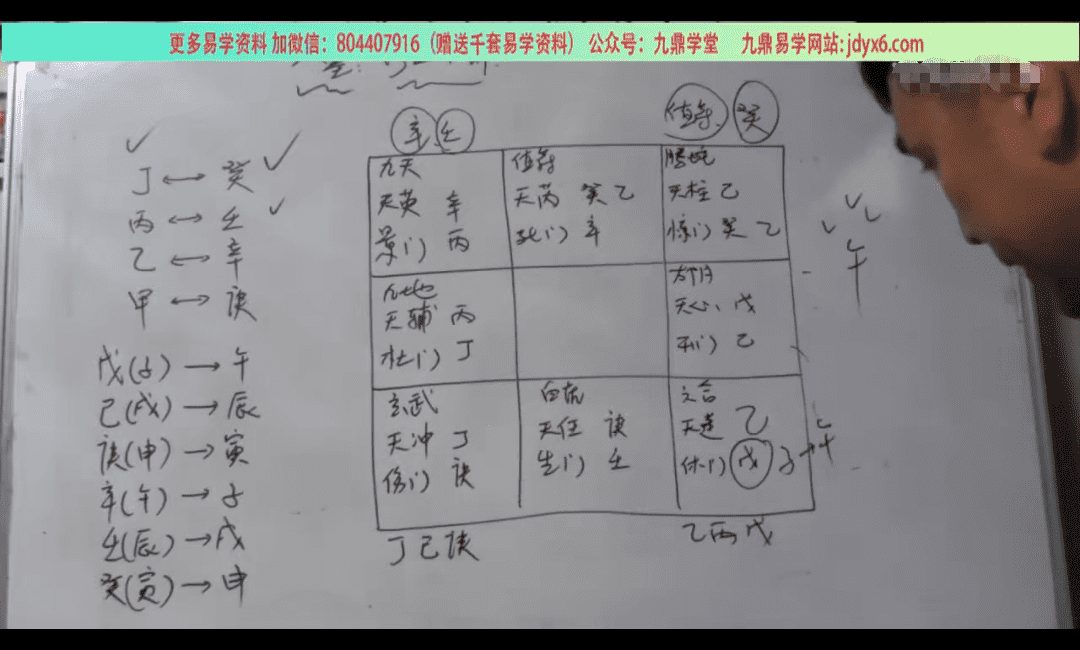 更多易学资料 加微信：804407916（赠送千套易学资料） 公众号：九鼎学堂 九鼎易学网站:jdyx6.com
丁 ↔ 癸
丙 ↔ 壬
乙 ↔ 辛
甲 ↔ 庚
戊(子) → 午
己(戌) → 辰
庚(申) → 寅
辛(午) → 子
壬(辰) → 戌
癸(寅) → 申
辛 壬
值符 癸
九天
天英 辛
景门 丙
值符
天芮 癸 乙
死门 辛
腾蛇
天柱 乙
惊门 癸 乙
九地
天辅 丙
杜门 丁
太阴
天心 戊
开门 乙
玄武
天冲 丁
伤门 庚
白虎
天任 庚
生门 壬
六合
天蓬 乙
休门 戊 子 → 午
丁己庚
乙丙戊
午